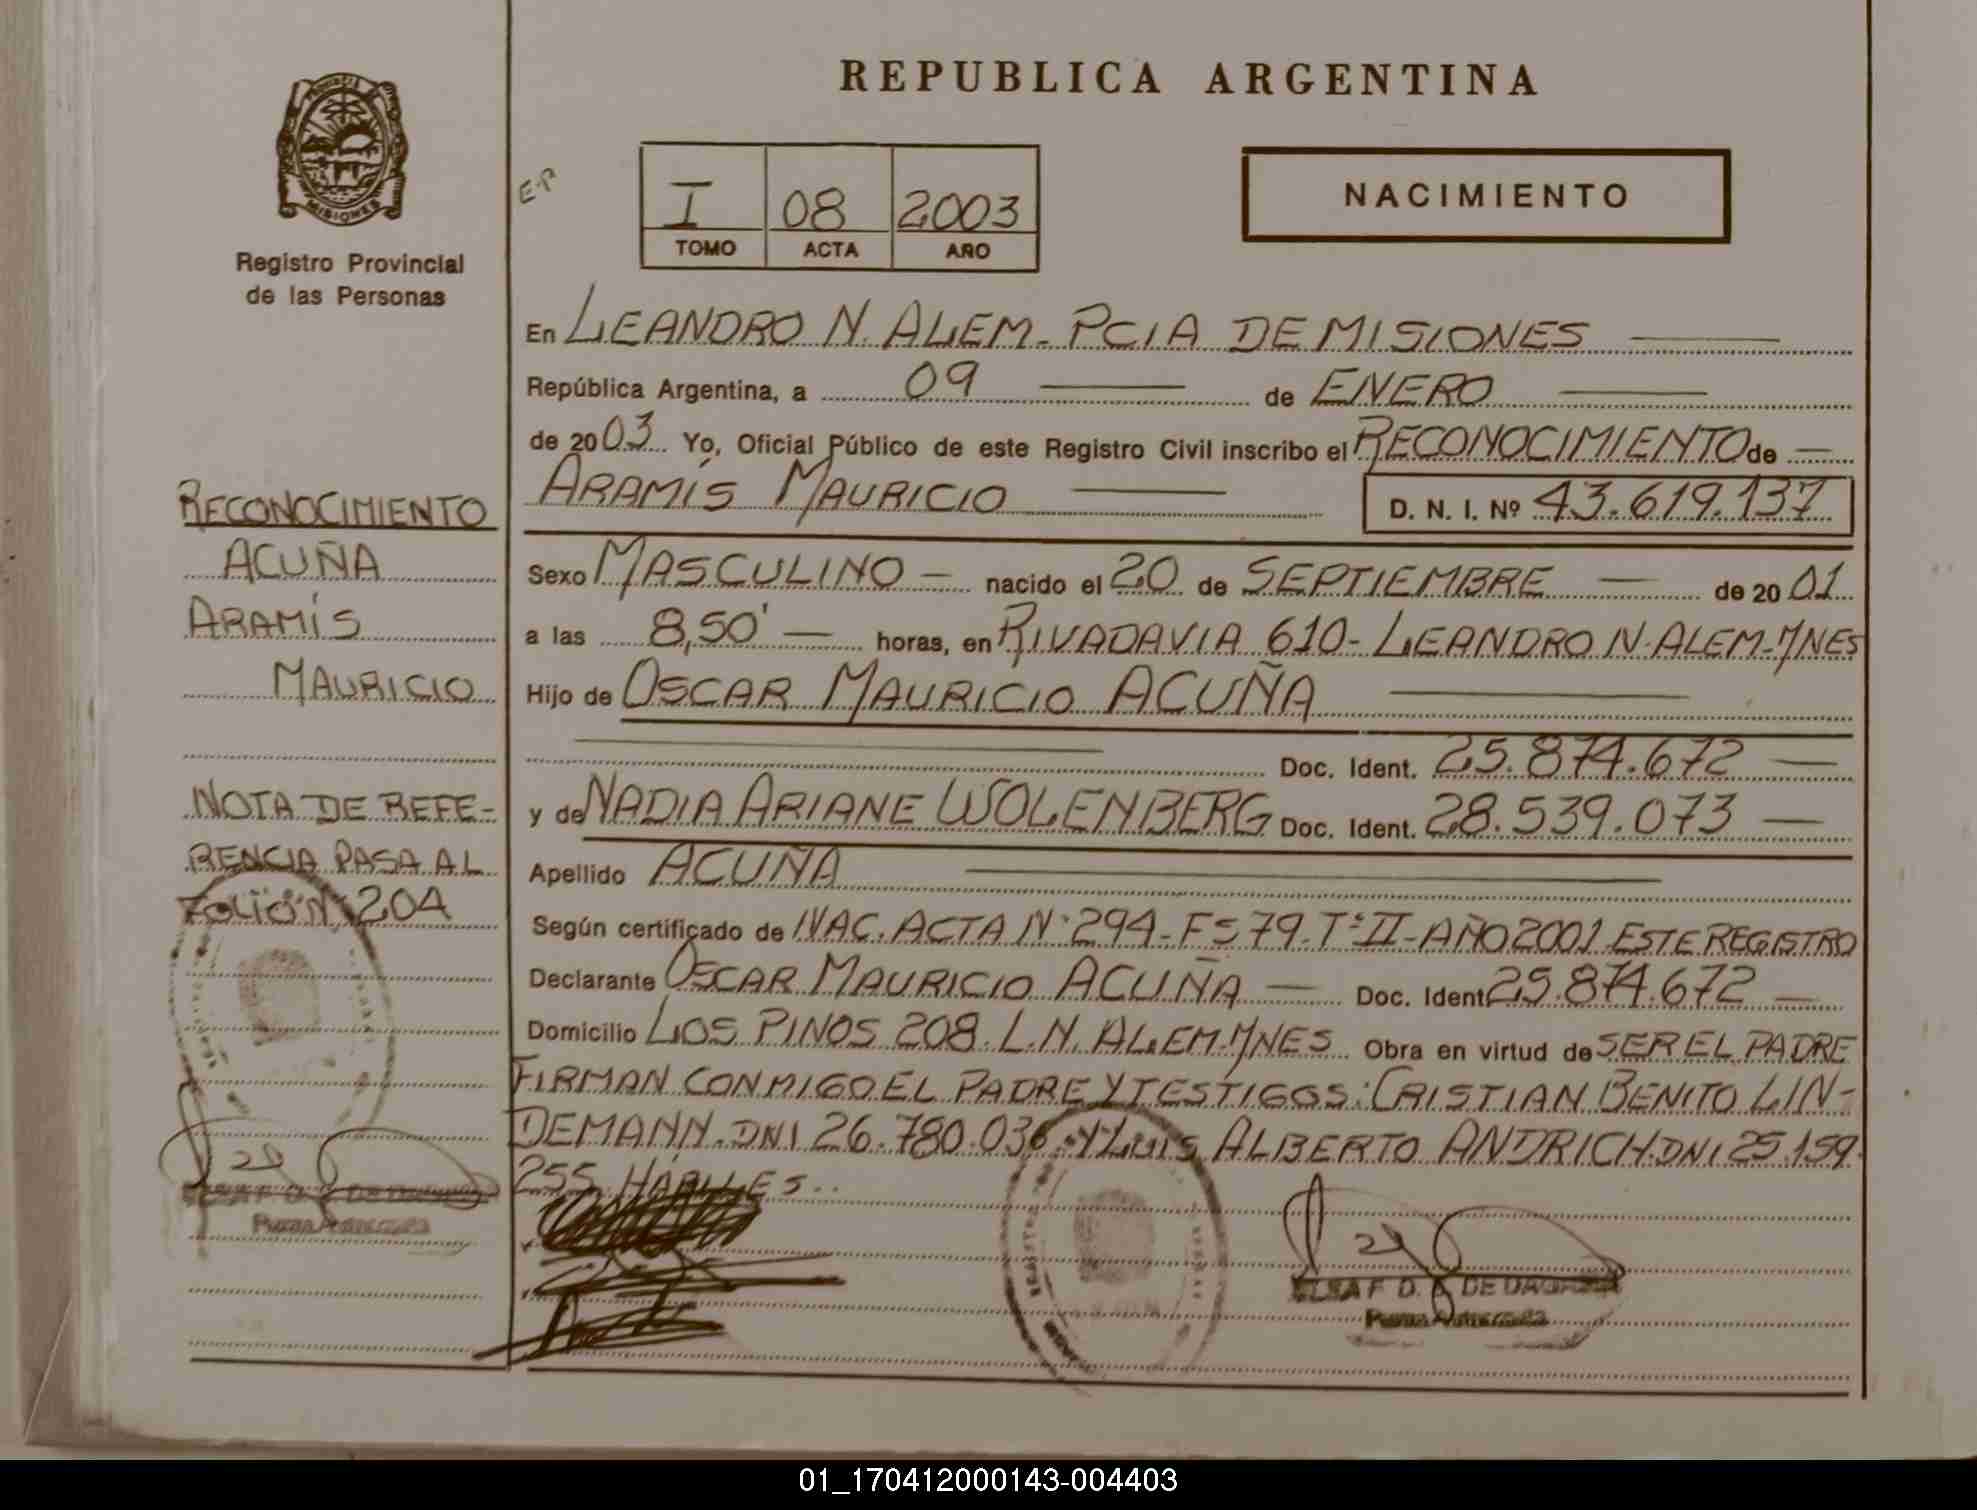 REPUBLICA ARGENTINA
MISIONES
Registro Provincial
de las Personas
E.P
I 08 2003
TOMO ACTA AÑO
NACIMIENTO
En LEANDRO N. ALEM - PCIA DE MISIONES
República Argentina, a 09 de ENERO
de 2003 Yo, Oficial Público de este Registro Civil inscribo el RECONOCIMIENTO de
ARAMÍS MAURICIO
D. N. I. Nº 43.619.137
Sexo MASCULINO - nacido el 20 de SEPTIEMBRE de 2001
a las 8,50' horas, en RIVADAVIA 610 - LEANDRO N. ALEM - MNES
Hijo de OSCAR MAURICIO ACUÑA
Doc. Ident. 25.874.672
y de NADIA ARIANE WOLENBERG Doc. Ident. 28.539.073
Apellido ACUÑA
Según certificado de NAC. ACTA Nº 294 - Fº 79 - Tº II - AÑO 2001 ESTE REGISTRO
Declarante OSCAR MAURICIO ACUÑA Doc. Ident 25.874.672
Domicilio LOS PINOS 208. L.N. ALEM - MNES Obra en virtud de SER EL PADRE
FIRMAN CONMIGO EL PADRE Y TESTIGOS: CRISTIAN BENITO LIN-
DEMANN. DNI 26.780.036 Y LUIS ALBERTO ANDRICH. DNI 25.159.
255 HABILES..
RECONOCIMIENTO
ACUÑA
ARAMÍS
MAURICIO
NOTA DE REFE-
RENCIA PASA AL
FOLIO Nº 204
ELSA F. D. DE
01_170412000143-004403